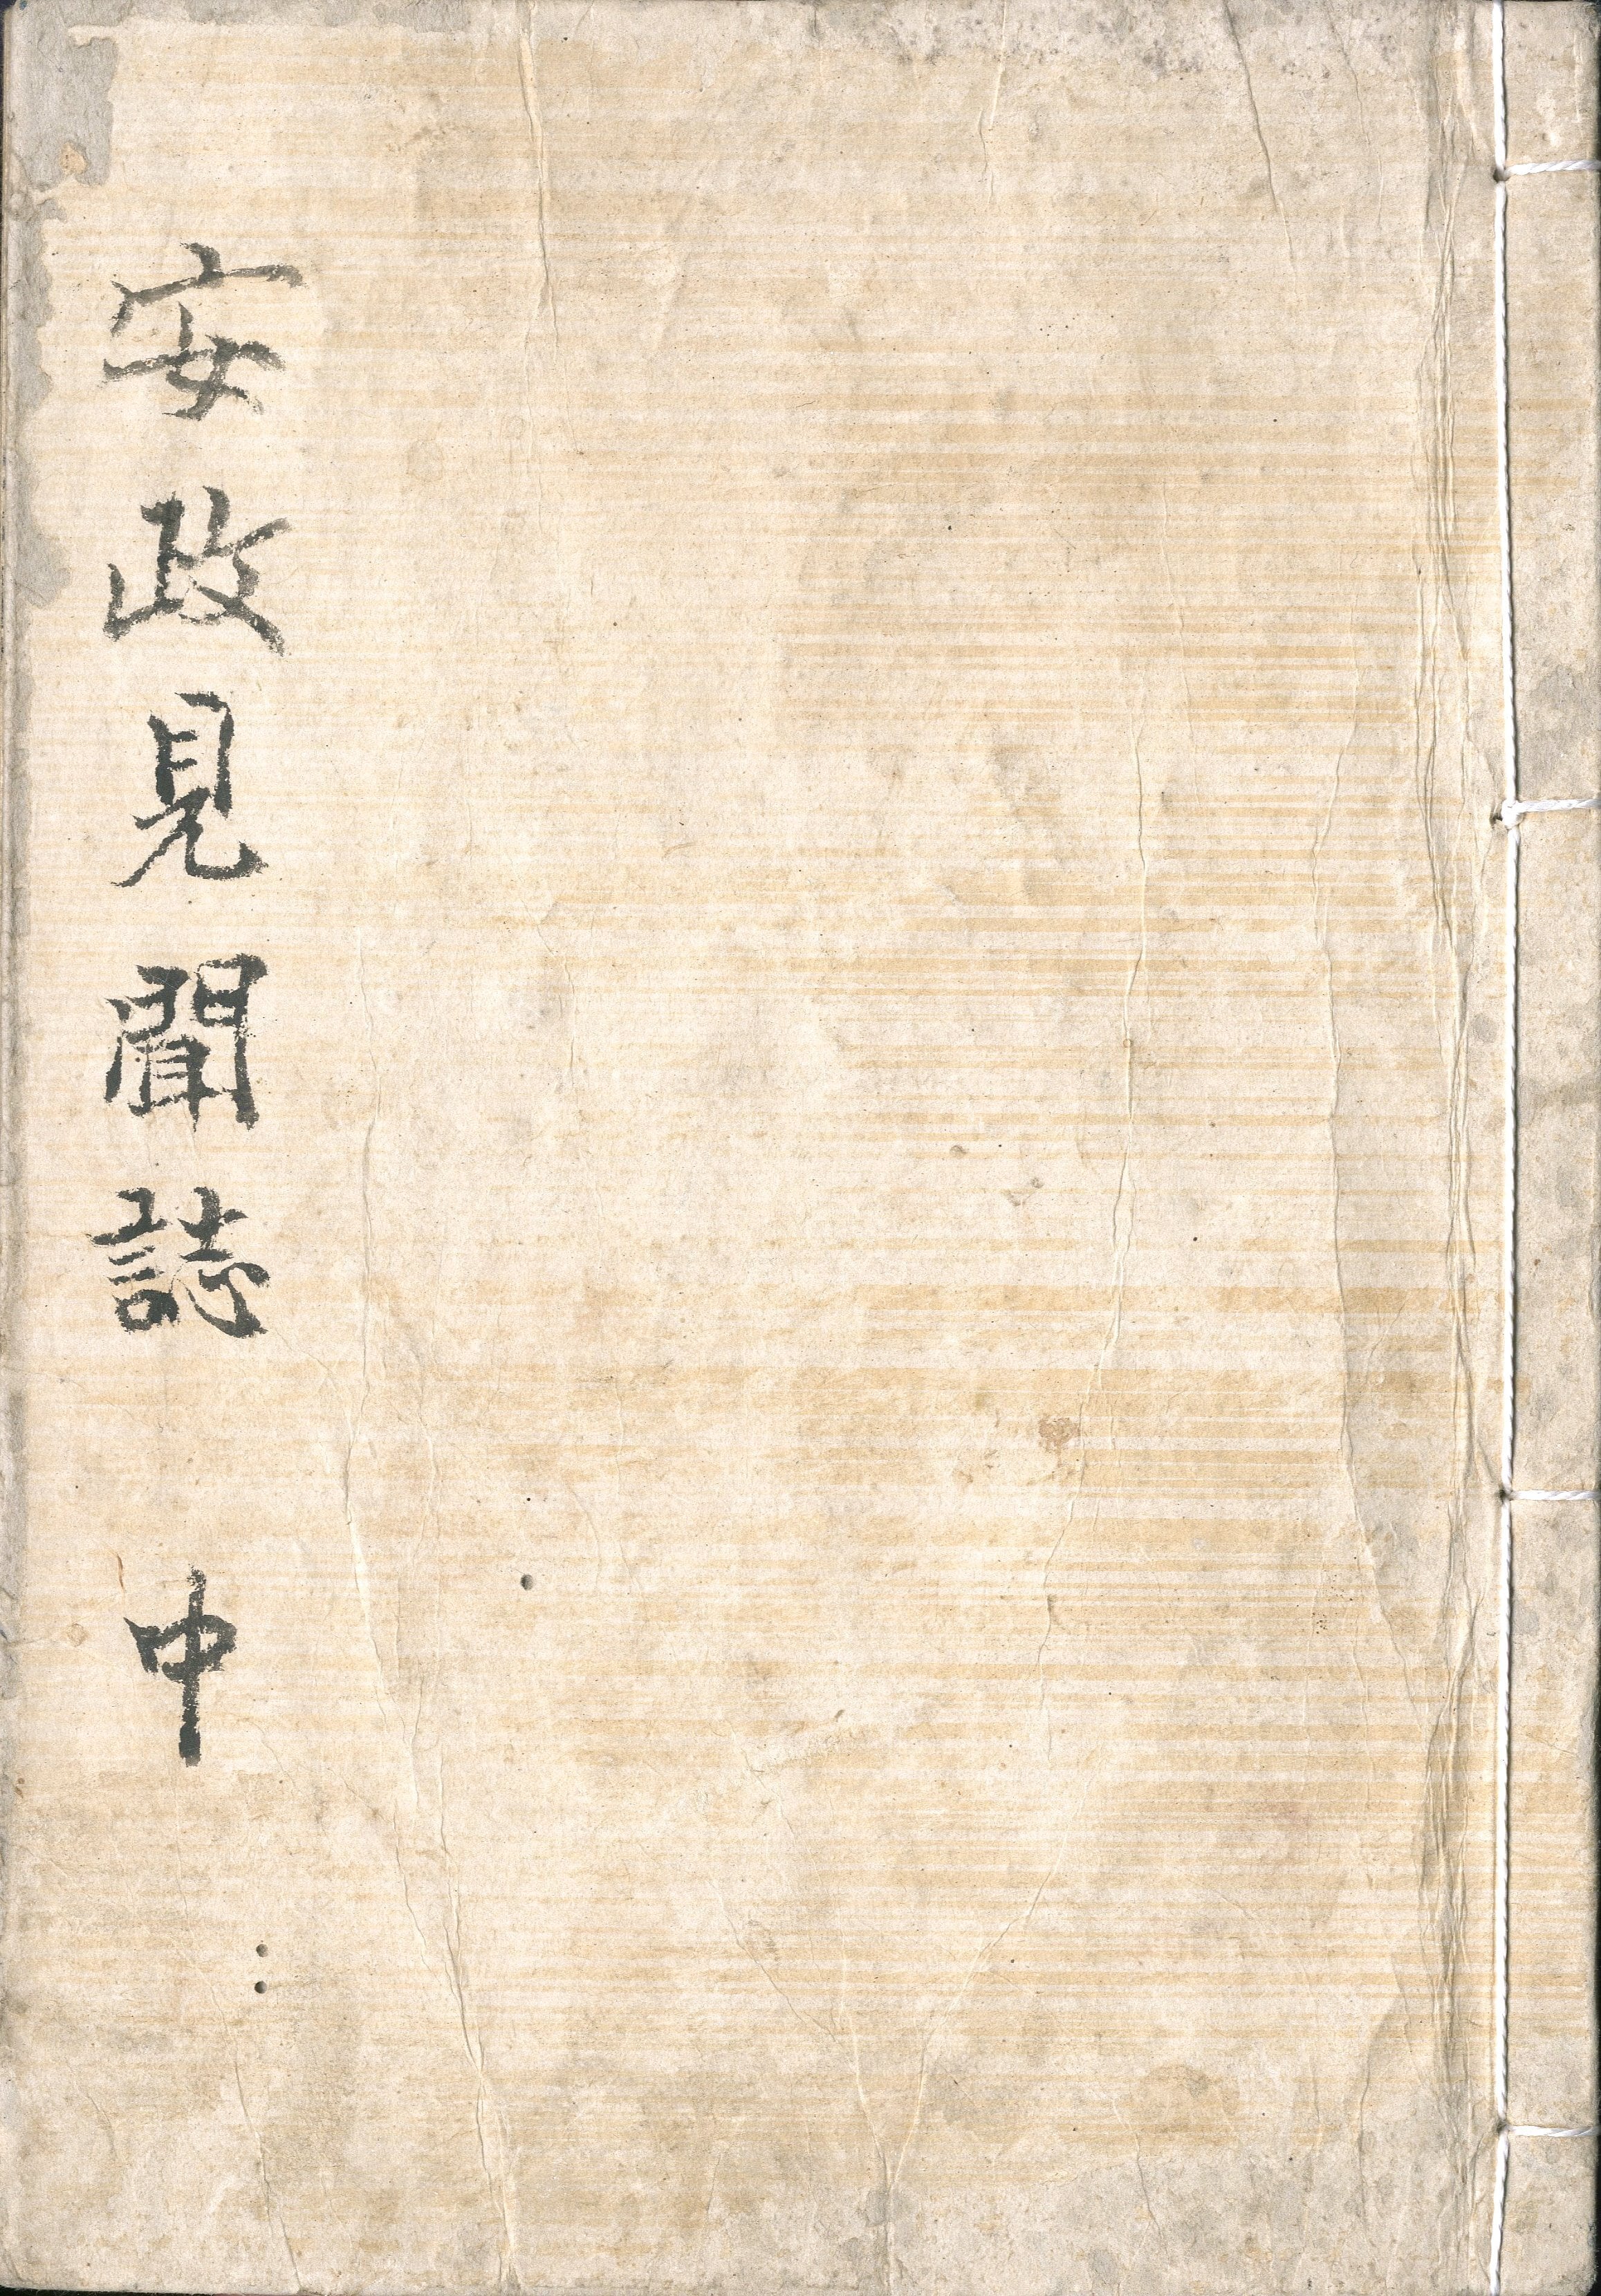 安政見聞誌　中